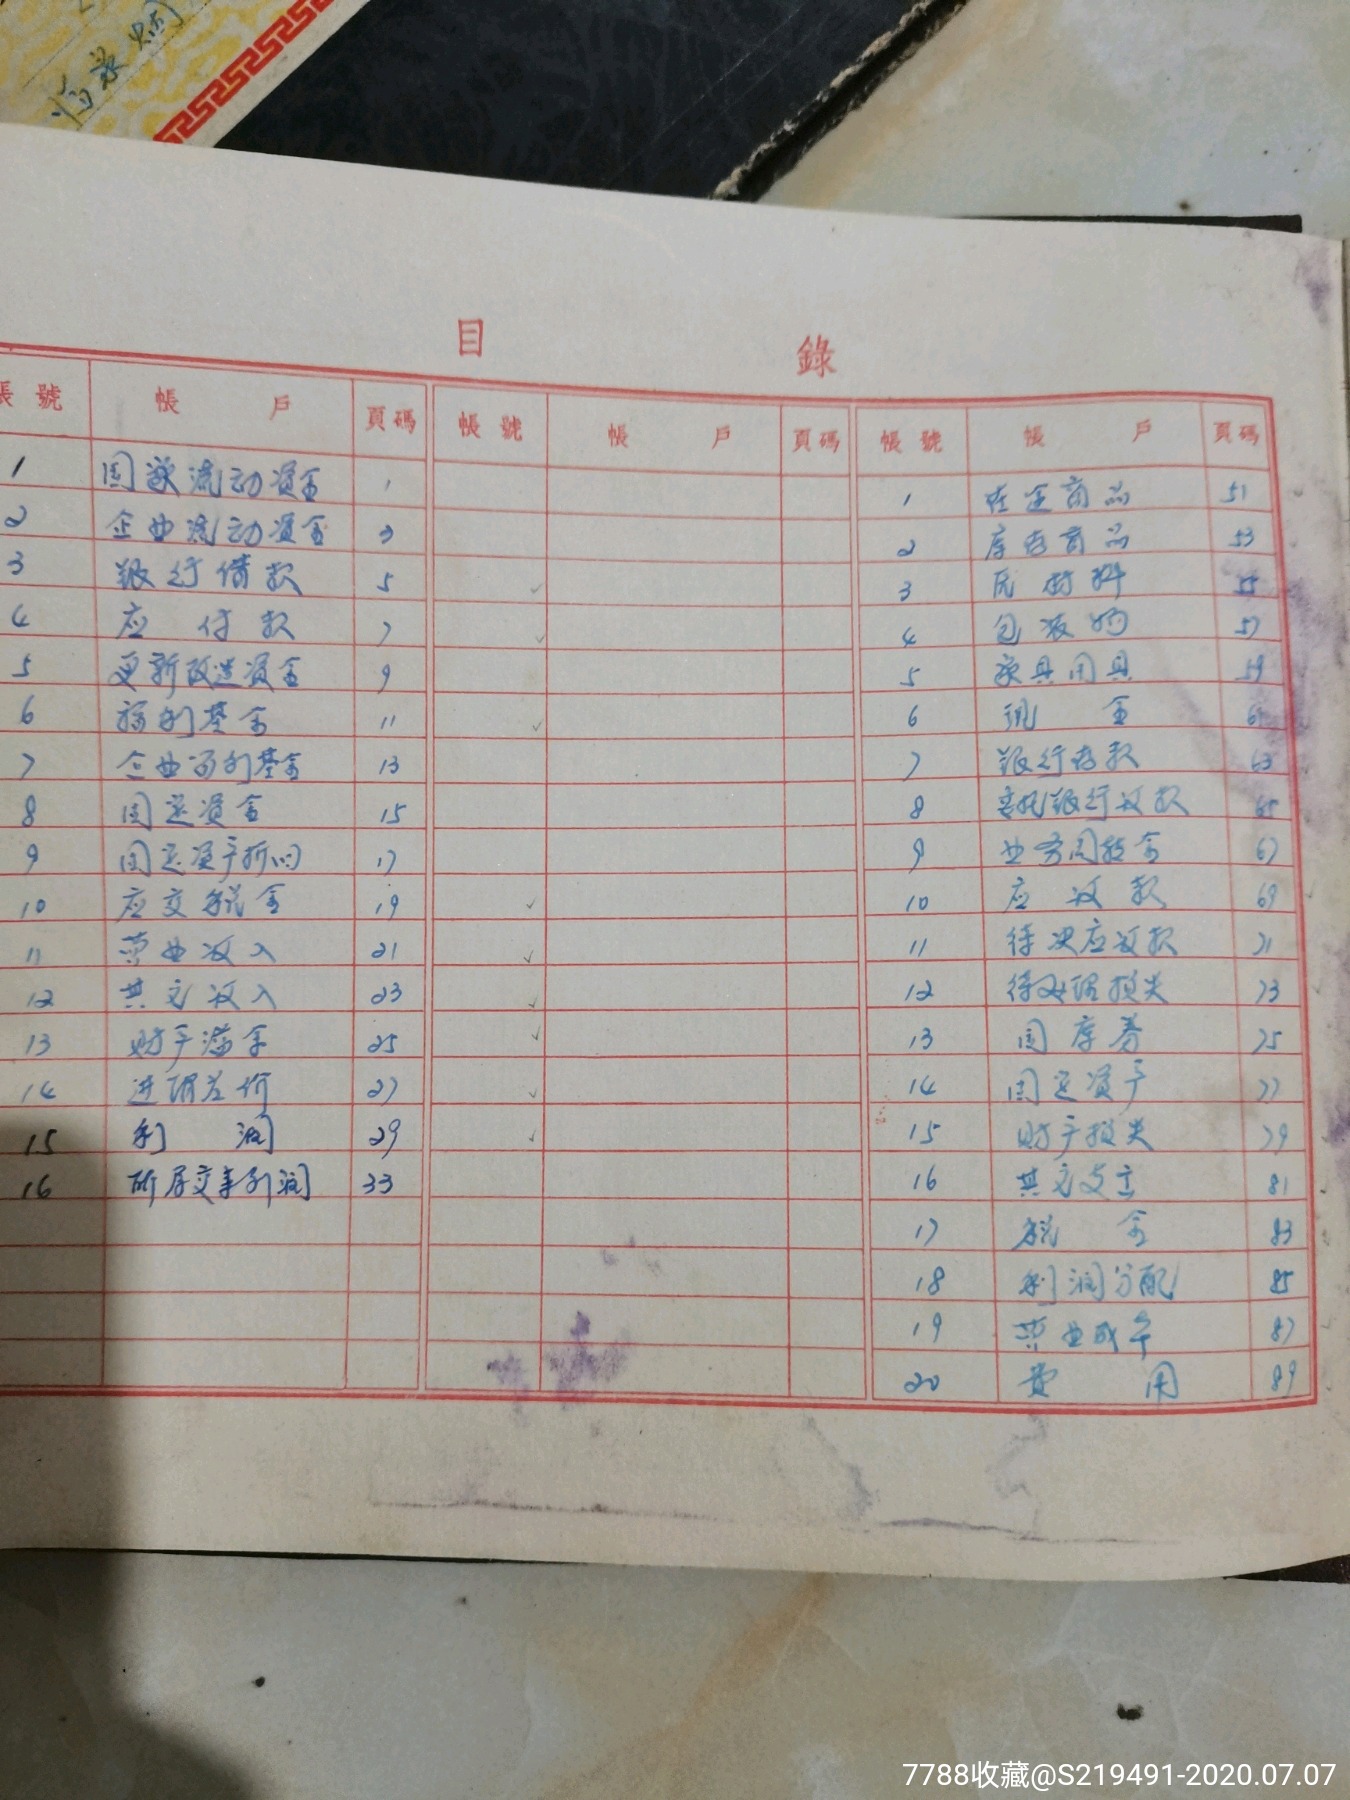 目 錄
帳號 帳戶 頁碼 帳號 帳戶 頁碼 帳號 帳戶 頁碼
1 国家流动資金 1
2 企业流动資金 3
3 银行借款 5
4 应付款 7
5 更新改造資金 9
6 福利基金 11
7 企业福利基金 13
8 固定資金 15
9 固定資产折旧 17
10 应交税金 19
11 营业收入 21
12 其它收入 23
13 财产溢余 25
14 进销差价 27
15 利润 29
16 所属交来利润 33
1 在途商品 51
2 库存商品 53
3 原材料 55
4 包装物 57
5 家具用具 59
6 现金 61
7 银行存款 63
8 委托银行收款 65
9 业务周转金 67
10 应收款 69
11 待决应收款 71
12 待处理损失 73
13 国库券 75
14 固定資产 77
15 财产损失 79
16 其它支出 81
17 税金 83
18 利润分配 85
19 营业成本 87
20 费用 89
7788收藏@S219491-2020.07.07